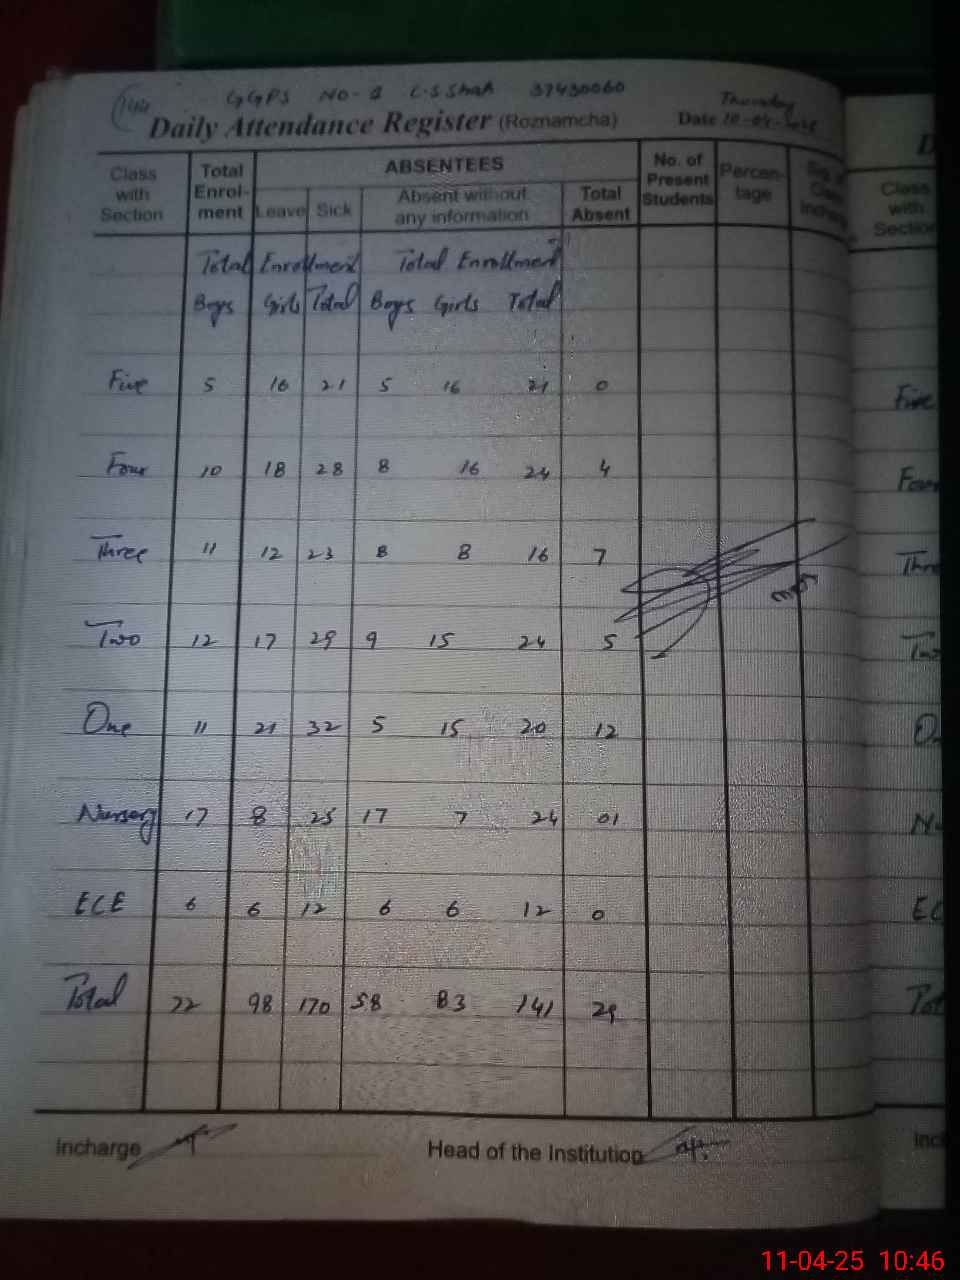 144
GGPS NO-1 C.S Shah 37430060
Thursday
Daily Attendance Register (Roznamcha) Date 10-04-2025
Class with Section
Total Enrol-ment
ABSENTEES
Leave Sick
Absent without any information
Total Absent
No. of Present Students
Percen-tage
Total Enrollment Total Enrollment
Boys Girls Total Boys Girls Total
Five 5 16 21 5 16 21 0
Four 10 18 28 8 16 24 4
Three 11 12 23 8 8 16 7
Two 12 17 29 9 15 24 5
One 11 21 32 5 15 20 12
Nursery 17 8 25 17 7 24 01
ECE 6 6 12 6 6 12 0
Total 72 98 170 58 83 141 29
Incharge Head of the Institution
Class with Section
Five
11-04-25 10:46